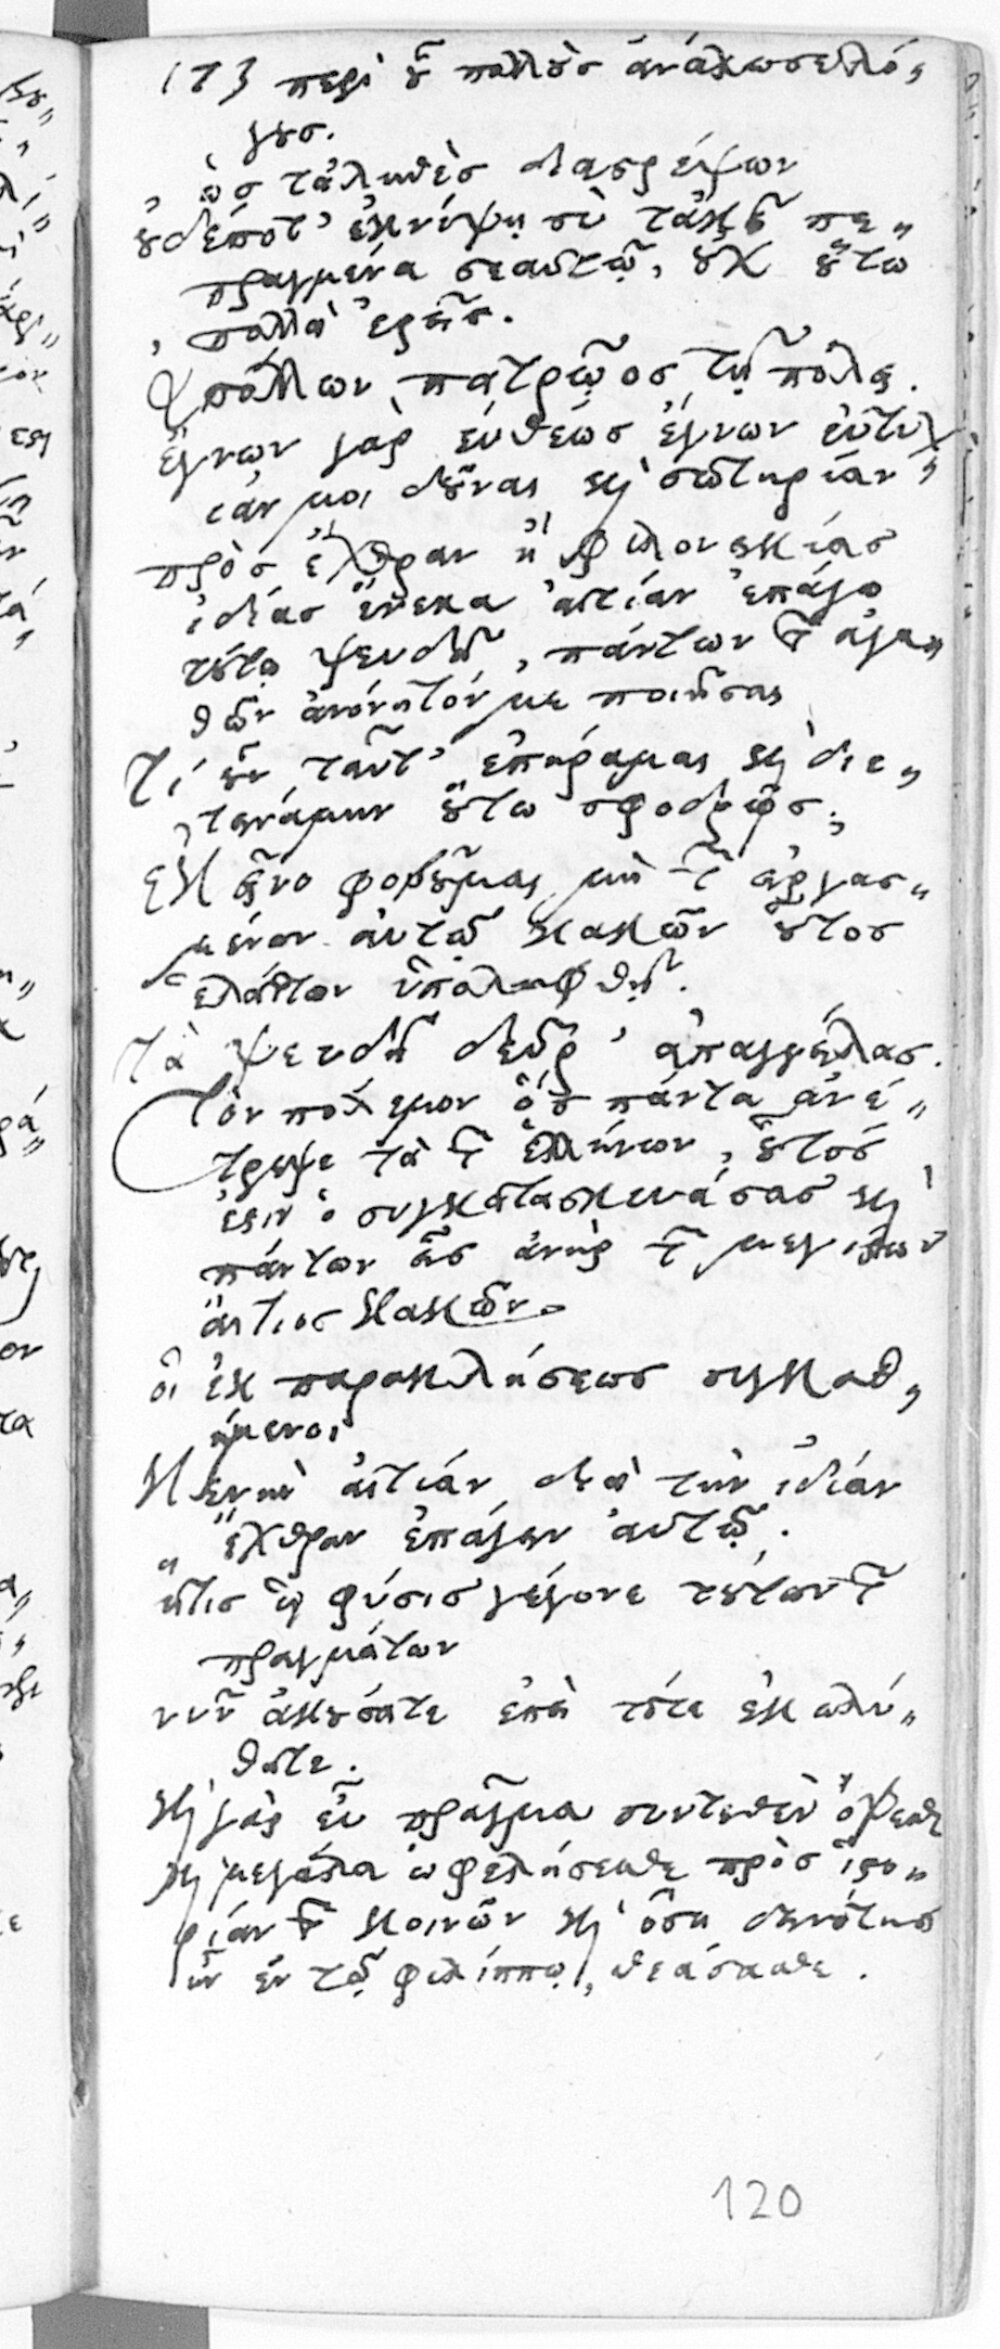 173 περὶ οὗ πολλοὺς ἀνάλωσε λό,,
γους.
ὡς τἀληθὲς διαστρέψων
οὐδέποτ' ἐκνίψῃ σὺ τἀκεῖ πε,,
πραγμένα σεαυτῷ, οὐχ οὕτω
πολλὰ ἐρεῖς.
Ἀπόλλων πατρῷος τῇ πόλει.
ἔγνων γὰρ εὐθέως ἔγνων εὐτυχ,,
ίαν μοι δοῦναι καὶ σωτηρίαν
πρὸς ἔχθραν ἢ φιλονεικίας
ἰδίας ἕνεκα αἰτίαν ἐπάγω
τούτῳ ψευδῆ, πάντων τῶν ἀγα,,
θῶν ἀνόνητόν με ποιῆσαι
Τί οὖν ταῦτ' ἐπήραμαι καὶ διε,,
τεινάμην οὕτω σφοδρῶς;
ἐκεῖνο φοβοῦμαι μὴ τῶν εἰργασ,,
μένων αὐτῷ κακῶν οὗτος
ἐλάττων ὑποληφθῇ.
Τὰ ψευδῆ δεῦρ' ἀπαγγείλας.
Τὸν πόλεμον ὃς πάντα ἀνέ,,
τρεψε τὰ τῶν ἑλλήνων, οὗτός
ἐστιν ὁ συγκατασκευάσας καὶ
πάντων εἷς ἀνὴρ τῶν μεγίστων
αἴτιος κακῶν.
οἱ ἐκ παρακλήσεως συγκαθ,,
ήμενοι
κενὴν αἰτίαν διὰ τὴν ἰδίαν
ἔχθραν ἐπάγειν αὐτῷ.
ἥτις ἡ φύσις γέγονε τούτων τῶν
πραγμάτων
νῦν ἀκούσατε ἐπεὶ τότε ἐκωλύ,,
θητε.
καὶ γὰρ εὖ πρᾶγμα συντεθὲν ὄψεσθε
καὶ μεγάλα ὠφελήσεσθε πρὸς ἱστο,,
ρίαν τῶν κοινῶν καὶ ὅση δεινότης
ἦν ἐν τῷ φιλίππῳ, θεάσασθε.
120